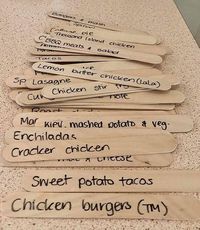 Bangers & mash
Thousand island chicken
BBQ meats & salad
Tacos
Lemon butter chicken (Lala)
Sp Lasagne
Chicken stir
Cu
Mar Kievi, mashed potato & veg.
Enchiladas
Cracker chicken
& cheese
Sweet potato tacos
Chicken burgers (TM)